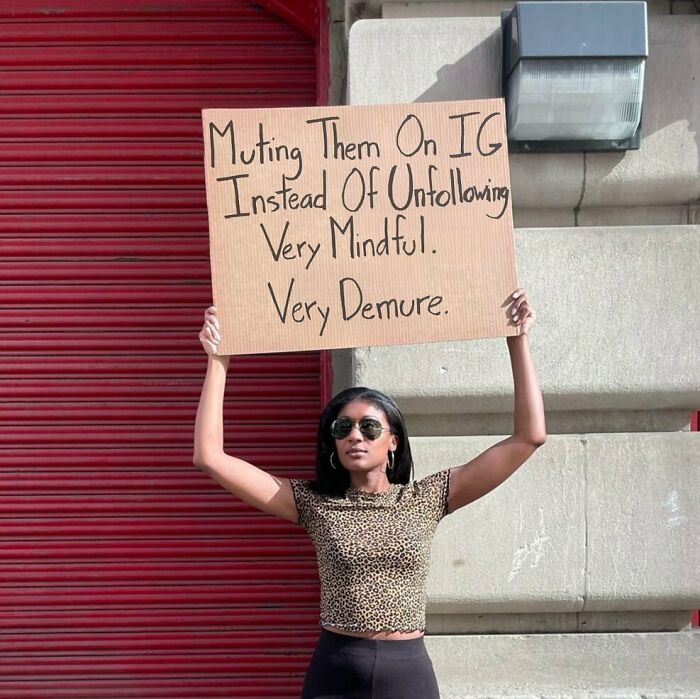 Muting Them On IG
Instead Of Unfollowing
Very Mindful.
Very Demure.